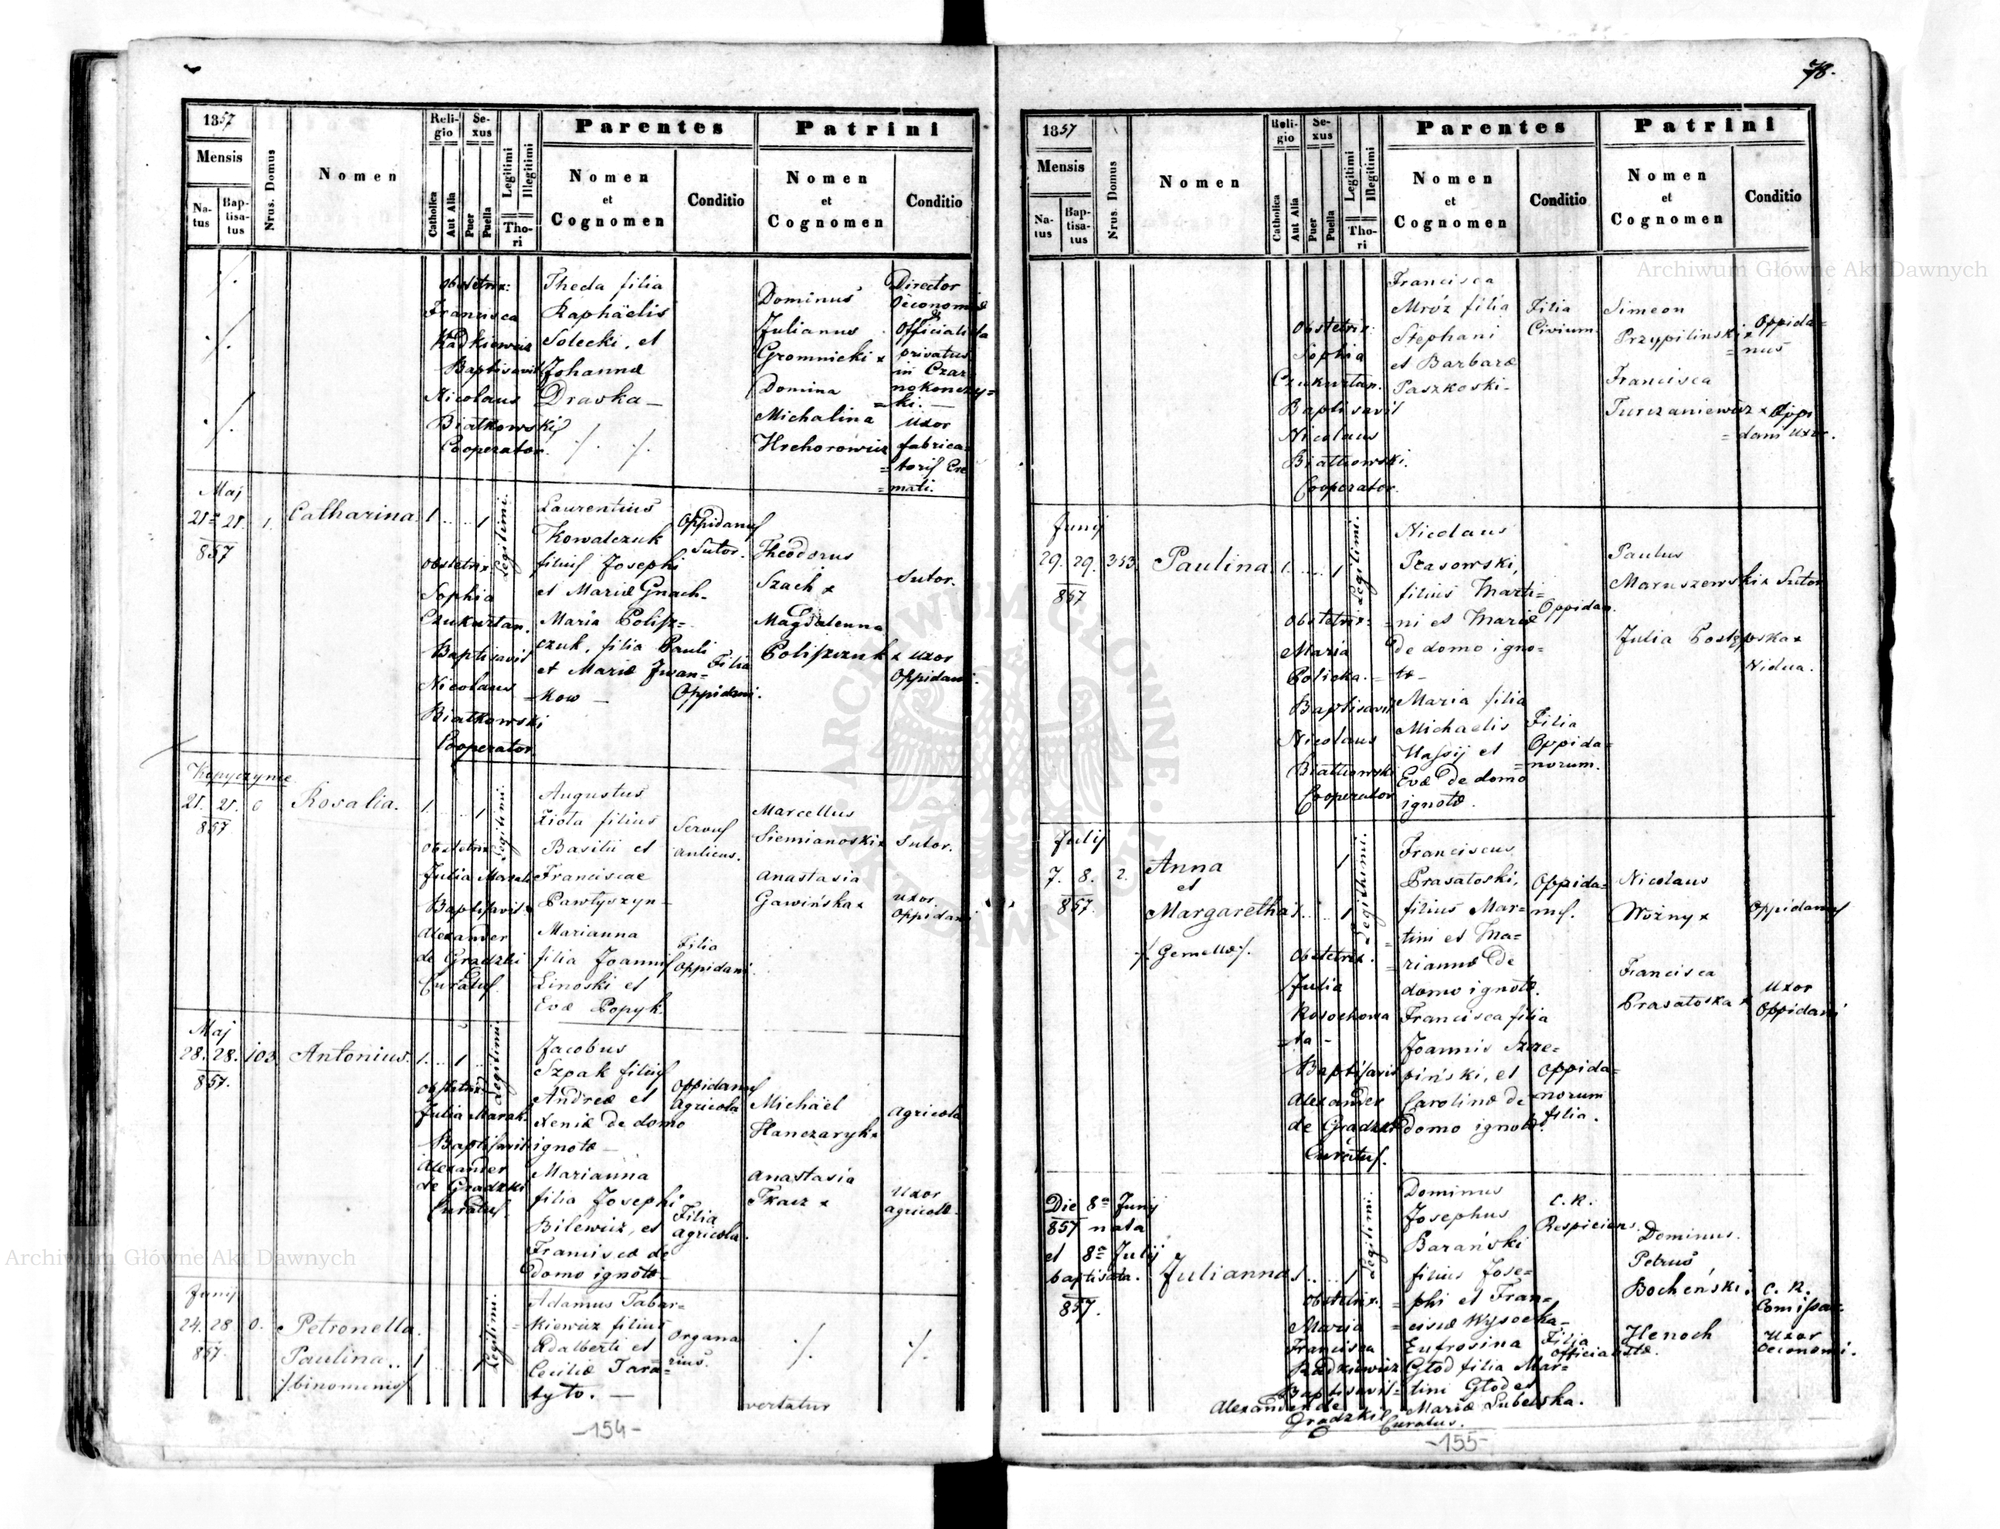 78.
1857
Mensis
Natus
Baptisatus
Nrus. Domus
Nomen
Religio
Catholica
Aut Alia
Sexus
Puer
Puella
Legitimi
Illegitimi
Thori
Parentes
Nomen
et
Cognomen
Conditio
Patrini
Nomen
et
Cognomen
Conditio
obstetrix:
Francisca
Radkiewicz
Baptisavit
Nicolaus
Białkowski
Cooperator.
Theda filia
Raphäelis
Solecki, et
Johannæ
Draska —
Dominus
Julianus
Gromnicki x
Domina
Michalina
Hrehorowicz
Director
Oeconomiæ
&
Officialista
privatus
in Czar
nokonczy=
=ki.
Uxor
fabrica=
=toris Cre
=mati.
Maj
21. 21. 1.
857
Catharina
1. .. 1
Legitimi.
obstetrix
Sophia
Czukurtan.
Baptisavit
Nicolaus
Białkowski
Cooperator.
Laurentius
Kowalczuk
filius Josephi
et Mariæ Gnach-
Maria Polisz=
czuk, filia Pauli
et Mariæ Iwan=
=kow —
Oppidanus
Sutor.
Filia
Oppidani.
Theodorus
Szach x
Magdalenna
Poliszczuk x
Sutor.
uxor
Oppidani.
Kopyczynce
21. 21. 0
857
Rosalia.
1. .. 1
Legitimi.
obstetrix
Julia Marak
Baptisavit
Alexander
de Gradzki
Curatus.
Augustus
Ziola filius
Basilii et
Franciscae
Pawłyszyn —
Marianna
filia Joannis
Linoski et
Evæ Popyk.
Servus
aulicus.
Filia
oppidani.
Marcellus
Siemianoski x
Anastasia
Gawińska x
Sutor.
uxor
Oppidani
Maj
28. 28. 103.
857.
Antonius.
1. .. 1
Legitimi.
obstetrix
Julia Marak.
Baptisavit
Alexander
de Gradzki
Curatus
Jacobus
Szpak filius
Andreæ et
Xeniæ de domo
ignotæ —
Marianna
filia Josephi
Bilewicz, et
Franciscæ de
domo ignotæ —
Oppidanus
Agricola
Filia
Agricolæ.
Michäel
Hanczaryk x
Anastasia
Tkacz x
Agricola
Uxor
agricolæ.
Junij
24. 28 0.
857.
Petronella
Paulina ..
/binomenis/
1 1
Legitimi.
Adamus Tabar=
=kiewicz filius
Adalberti et
Ceciliæ Tara=
tyto. —
Organa=
=rius.
vertatur
-154-
1857
Mensis
Natus
Baptisatus
Nrus. Domus
Nomen
Religio
Catholica
Aut Alia
Sexus
Puer
Puella
Legitimi
Illegitimi
Thori
Parentes
Nomen
et
Cognomen
Conditio
Patrini
Nomen
et
Cognomen
Conditio
Obstetrix:
Sophia
Czukurtan.
Baptisavit
Nicolaus
Białkowski.
Cooperator.
Francisca
Mróz filia
Stephani
et Barbaræ
Paszkoski -
Filia
Civium.
Simeon
Przypilinski x
Francisca
Turczaniewicz x
Oppida=
=nus
Oppi
=dani uxor.
Junij
29. 29. 353.
857
Paulina
1. .. 1
Legitimi.
Obstetrix:
Maria
Policka.
Baptisavit
Nicolaus
Białkowski
Cooperator
Nicolaus
Prasowski,
filius Marti=
=ni et Mariæ
de domo igno=
=tæ -
Maria filia
Michaelis
Wassij et
Evæ de domo
ignotæ.
Oppidan.
Filia
Oppida=
=norum.
Paulus
Maruszewski x
Julia Postępska x
Sutor
Vidua.
Julij
7. 8. 2.
857.
Anna
et
Margaretha
/Gemellæ/.
1
1. .. 1
Legitimi.
Obstetrix.
Julia
Rosochowa
=ta -
Baptisavit
Alexander
de Gradzki
Curatus.
Franciscus
Prasatoski,
filius Mar=
=tini et Ma=
=riannæ de
domo ignotæ.
Francisca filia
Joannis Szcze=
piński, et
Carolinæ de
domo ignotæ.
Oppida=
nus.
Oppida=
norum
filia.
Nicolaus
Woźny x
Francisca
Prasatoska x
Oppidanus
Uxor
Oppidani
Die 8a Junij
857 nata
et 8a Julij
baptisata.
857.
Julianna
1. .. 1
Legitimi.
Obstetrix.
Maria
Francisca
Radkiewicz
Baptisavit
Alexander de
Gradzki Curatus.
Dominus
Josephus
Barański
filius Jose=
=phi et Fran=
=ciscæ Wysocka -
Eufrosina
Głod filia Mar=
=tini Głod et
Mariæ Lubelska.
C. R.
Respiciens.
Filia
Officialistæ.
Dominus.
Petrus
Bocheński.
Henoch
C. R.
Comissar.
Uxor
Oeconomi.
-155-
Archiwum Główne Akt Dawnych
Archiwum Główne Akt Dawnych
ARCHIWUM GŁÓWNE AKT DAWNYCH